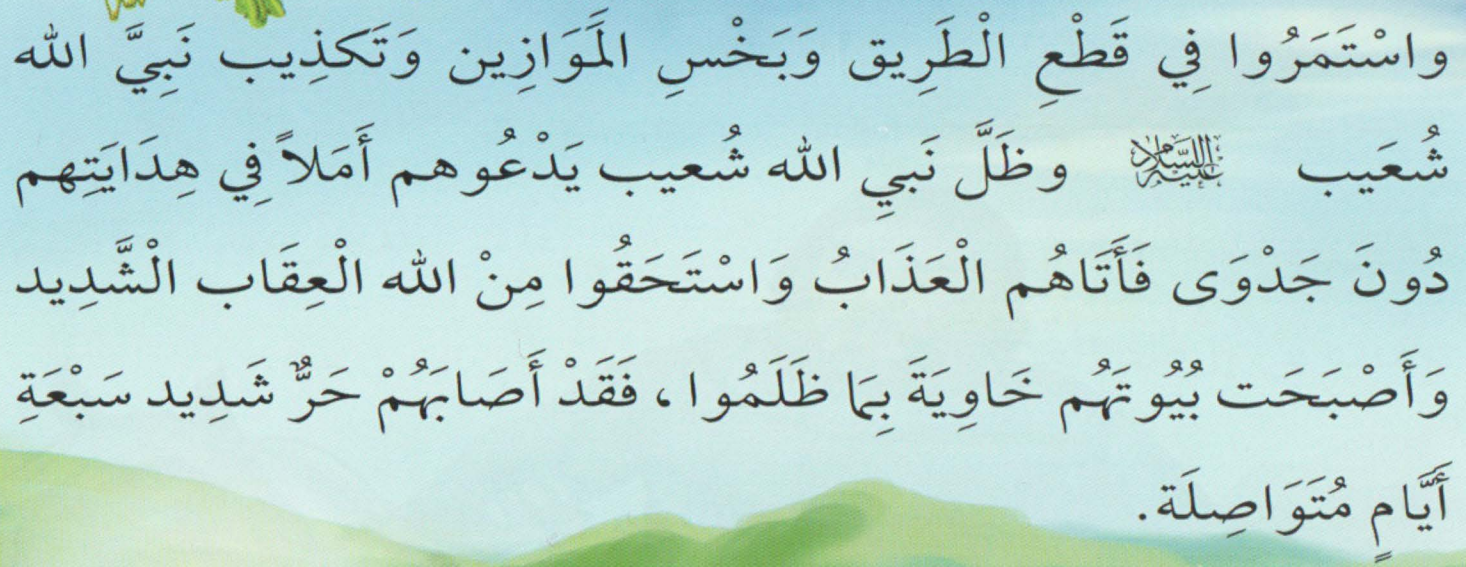 واسْتَمَرُوا فِي قَطْعِ الْطَرِيق وَبَخْسِ المَوَازِين وَتَكذِيب نَبِيَّ الله
شُعَيب عَلَيْهِ السَّلَام وظَلَّ نَبيِ الله شُعيب يَدْعُوهم أَمَلاً فِي هِدَايَتِهم
دُونَ جَدْوَى فَأَتَاهُم الْعَذَابُ وَاسْتَحَقُوا مِنْ الله الْعِقَاب الْشَّدِيد
وَأَصْبَحَت بُيُوتَهُم خَاوِيَةَ بِمَا ظَلَمُوا، فَقَدْ أَصَابَهُمْ حَرٌّ شَدِيد سَبْعَةِ
أَيَّامٍ مُتَوَاصِلَة.